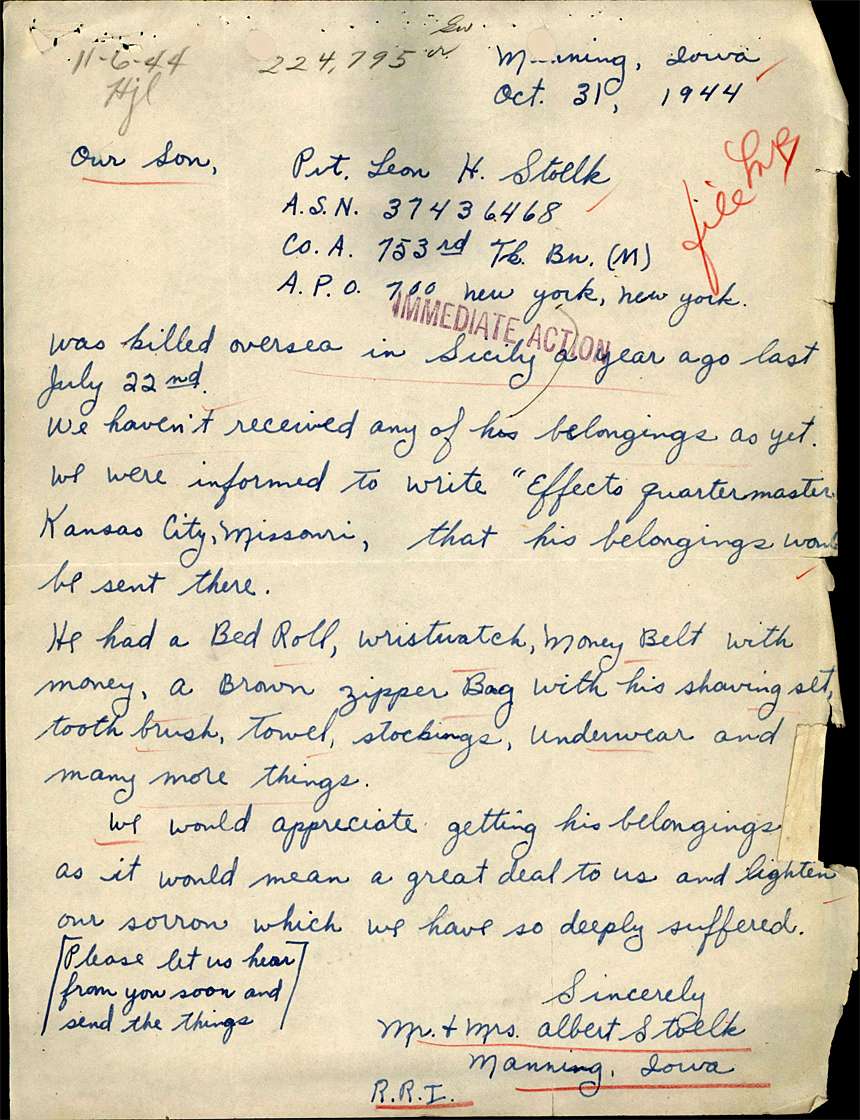 11-6-44
Hjl
224,795
Manning, Iowa
Oct. 31, 1944
file
Our Son,
Pvt. Leon H. Stoelk
A.S.N. 37436468
Co. A. 753rd Tk. Bn. (M)
A.P.O. 700 new york, new york.
IMMEDIATE ACTION
was killed oversea in Sicily a year ago last
July 22nd.
We haven't received any of his belongings as yet.
We were informed to write "Effects quartermaster
Kansas City, Missouri, that his belongings would
be sent there.
He had a Bed Roll, wristwatch, Money Belt with
money, a Brown zipper Bag with his shaving set,
tooth brush, Towel, stockings, underwear and
many more things.
We would appreciate getting his belongings
as it would mean a great deal to us and lighten
our sorrow which we have so deeply suffered.
[Please let us hear
from you soon and
send the things]
Sincerely
Mr. + Mrs. Albert Stoelk
Manning, Iowa
R.R.I.